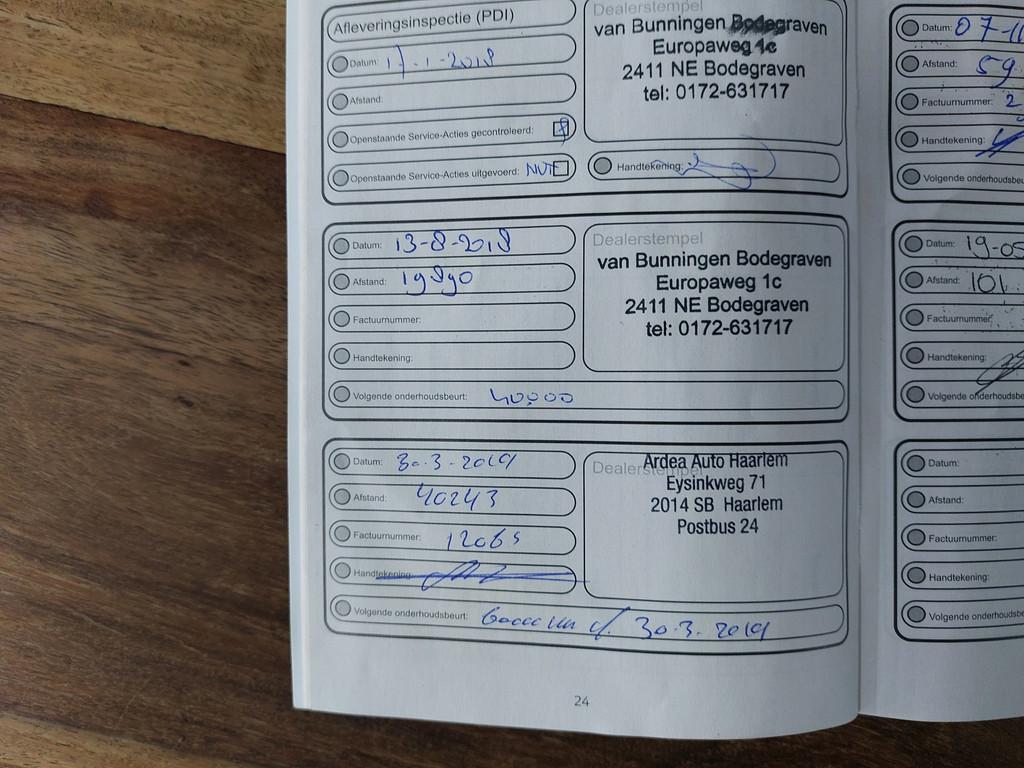 Afleveringsinspectie (PDI)
Datum: 17-1-2018
Afstand:
Openstaande Service-Acties gecontroleerd:
Openstaande Service-Acties uitgevoerd: NVT
Dealerstempel
van Bunningen Bodegraven
Europaweg 1c
2411 NE Bodegraven
tel: 0172-631717
Handtekening:
Datum: 13-8-2018
Afstand: 19890
Factuurnummer:
Handtekening:
Volgende onderhoudsbeurt: 40.000
Dealerstempel
van Bunningen Bodegraven
Europaweg 1c
2411 NE Bodegraven
tel: 0172-631717
Datum: 30-3-2019
Afstand: 40243
Factuurnummer: 12065
Handtekening:
Volgende onderhoudsbeurt: 30.3.2019
Dealerstempel
Ardea Auto Haarlem
Eysinkweg 71
2014 SB Haarlem
Postbus 24
24
Datum: 07-1
Afstand: 59
Factuurnummer: 2
Handtekening:
Volgende onderhoudsbeu
Datum: 19-05
Afstand: 101
Factuurnummer:
Handtekening:
Volgende onderhoudsbe
Datum:
Afstand:
Factuurnummer:
Handtekening:
Volgende onderhoudsbe